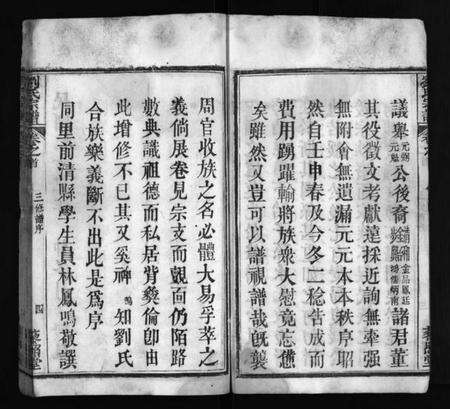 議舉元魁公後裔諸君董
其役徵文考獻遠採近詢無牽强
無附會無遺漏元元本本秩序昭
然自壬申春及今冬二稔告成而
費用踴躍輸將族衆大慰竟忘憊
矣雖然又豈可以譜視譜哉旣襲
周官收族之名必體大易孚萃之
義倘展卷見宗支而覿面仍陌路
數典識祖德而私居背彝倫卽由
此增修不已其又奚裨鳴知劉氏
合族樂義斷不出此是爲序
同里前清縣學生員林鳳鳴敬譔
劉氏宗譜
卷之首
三修譜序
四